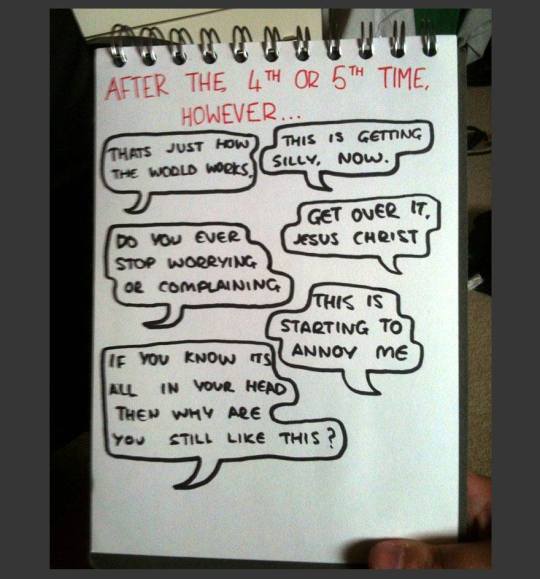 AFTER THE 4TH OR 5TH TIME,
HOWEVER...
THATS JUST HOW
THE WORLD WORKS.
THIS IS GETTING
SILLY, NOW.
GET OVER IT,
JESUS CHRIST
DO YOU EVER
STOP WORRYING
OR COMPLAINING
THIS IS
STARTING TO
ANNOY ME
IF YOU KNOW ITS
ALL IN YOUR HEAD
THEN WHY ARE
YOU STILL LIKE THIS?